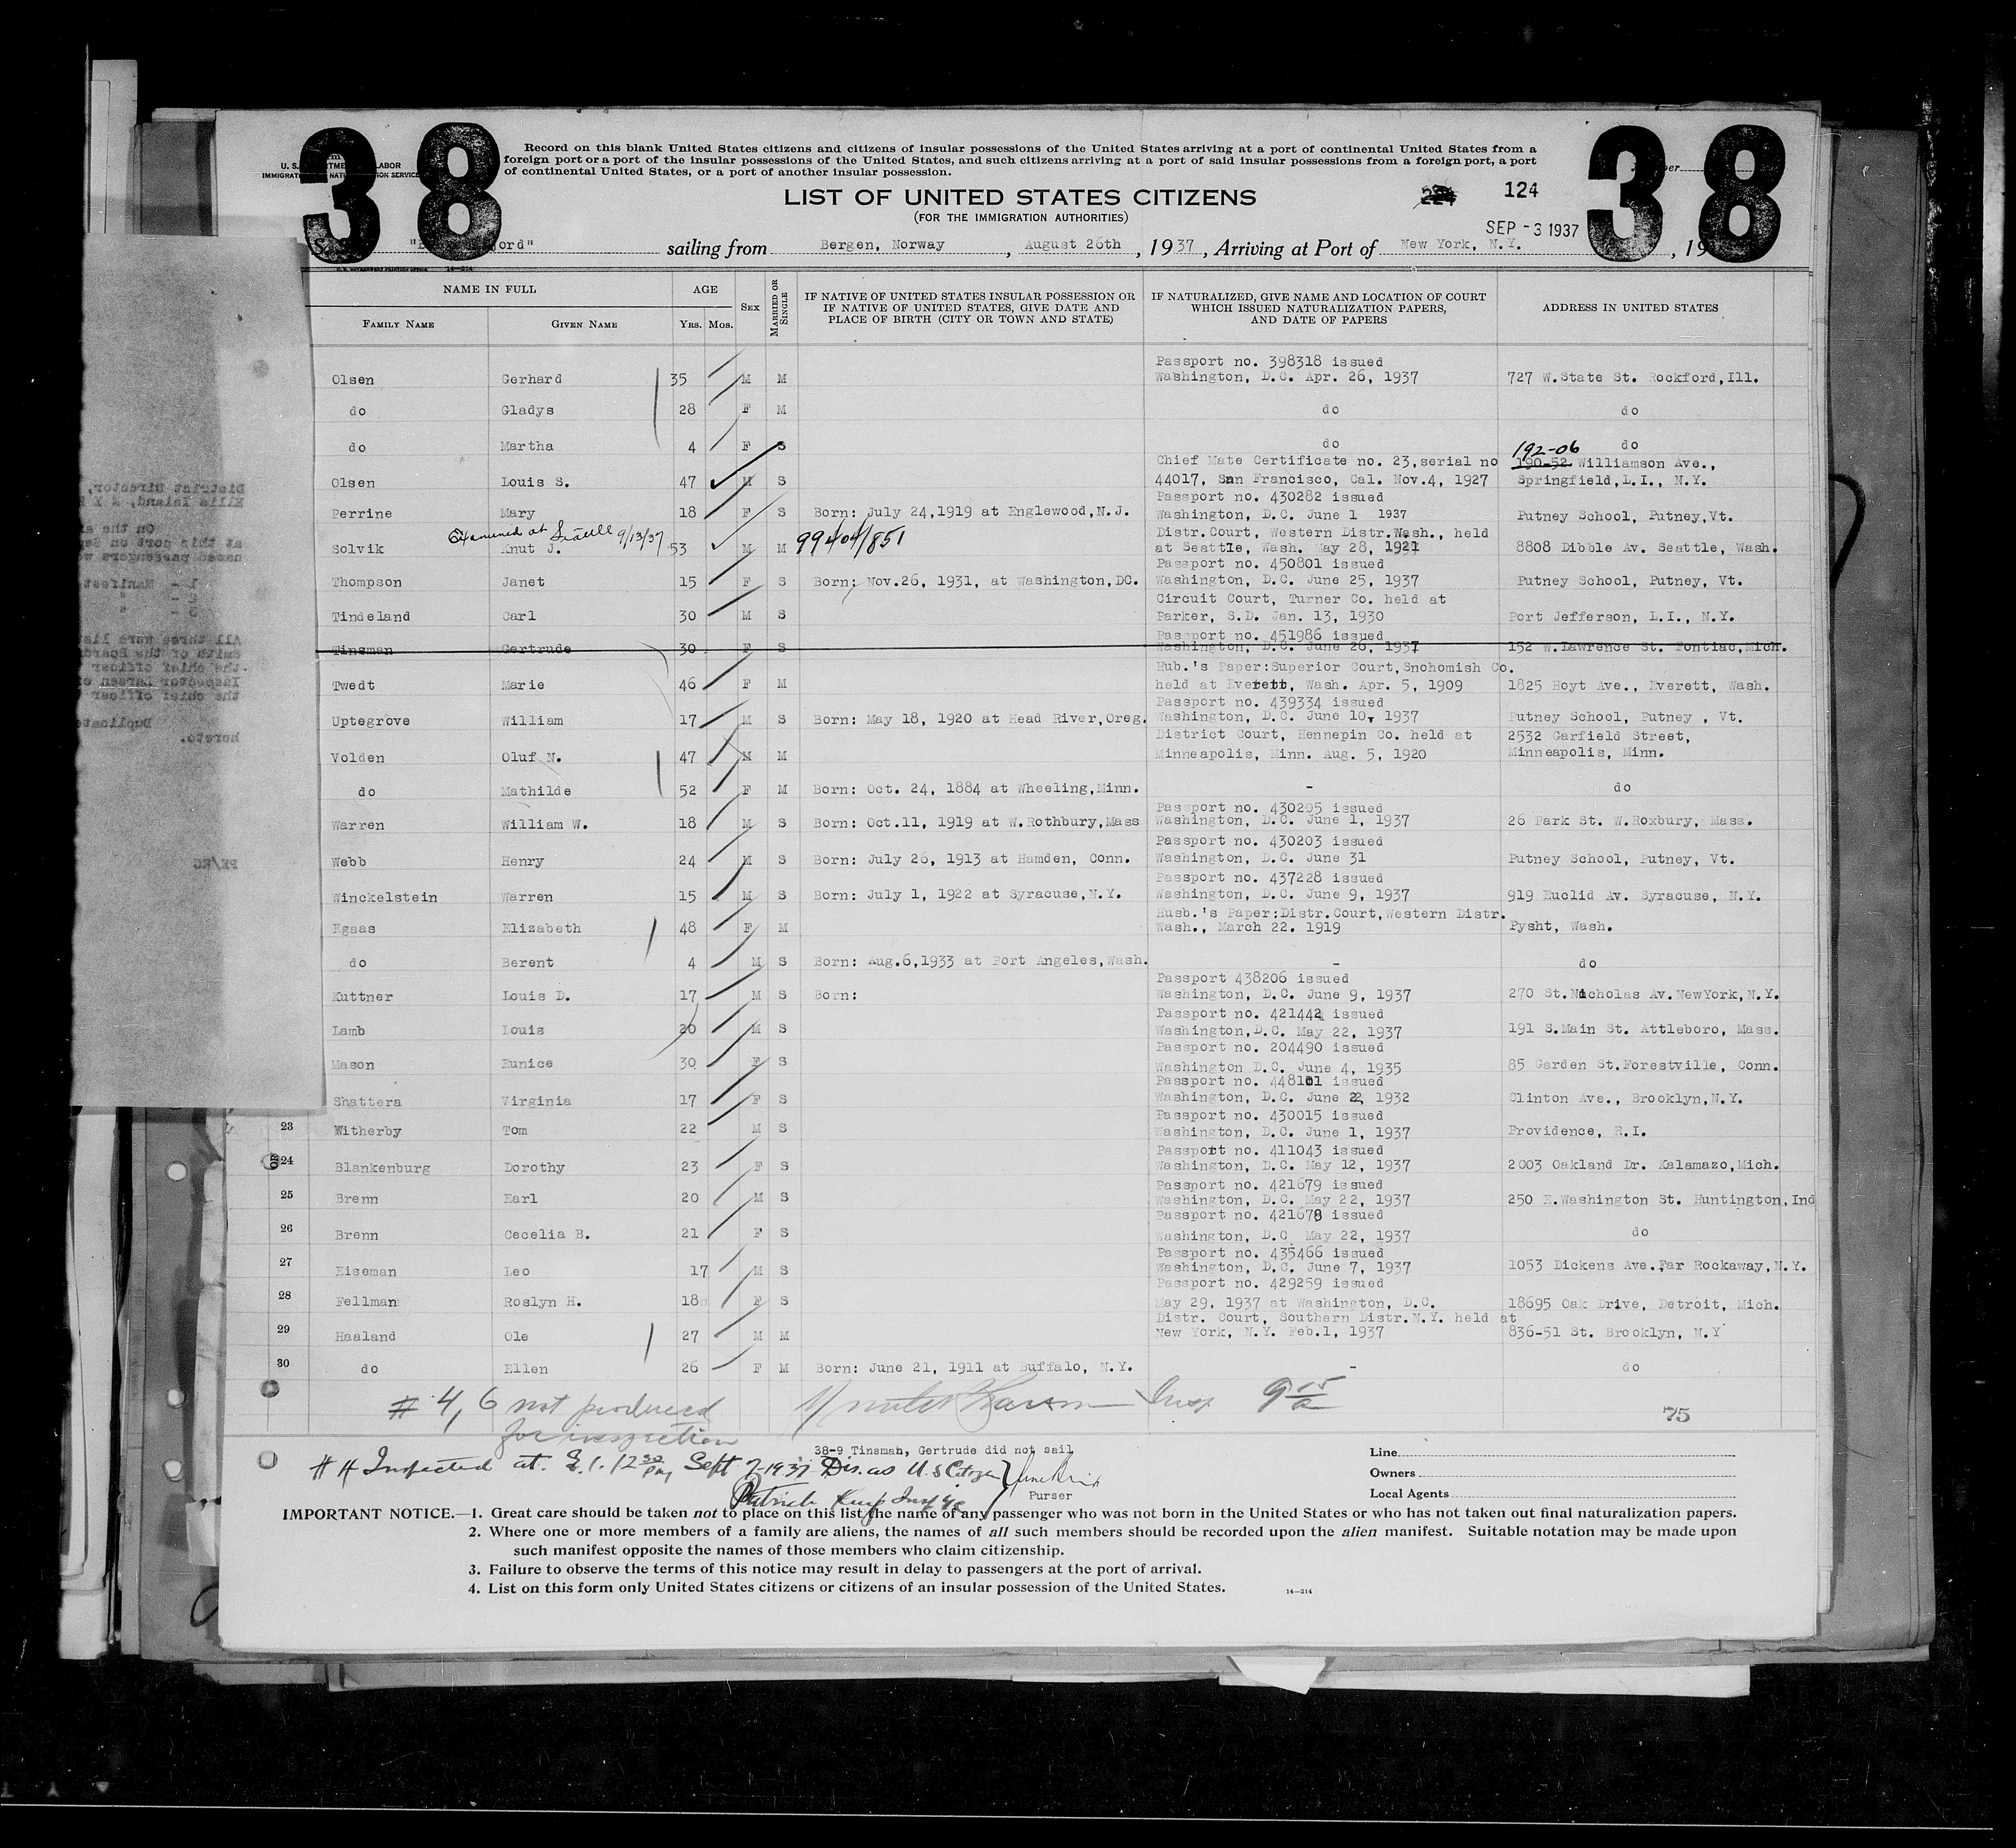 38 38
Record on this blank United States citizens and citizens of insular possessions of the United States arriving at a port of continental United States from a
foreign port or a port of the insular possessions of the United States, and such citizens arriving at a port of said insular possessions from a foreign port, a port
of continental United States, or a port of another insular possession.
LIST OF UNITED STATES CITIZENS
(FOR THE IMMIGRATION AUTHORITIES)
124
SEP - 3 1937
sailing from Bergen, Norway, August 26th, 1937, Arriving at Port of New York, N.Y., 19
NAME IN FULL AGE SEX MARRIED OR SINGLE IF NATIVE OF UNITED STATES INSULAR POSSESSION OR IF NATIVE OF UNITED STATES, GIVE DATE AND PLACE OF BIRTH (CITY OR TOWN AND STATE) IF NATURALIZED, GIVE NAME AND LOCATION OF COURT WHICH ISSUED NATURALIZATION PAPERS, AND DATE OF PAPERS ADDRESS IN UNITED STATES
FAMILY NAME GIVEN NAME YRS. MOS.
Passport no. 398318 issued
Olsen Gerhard 35 M M Washington, D.C. Apr. 26, 1937 727 W.State St. Rockford,Ill.
do Gladys 28 F M do do
do Martha 4 F S do do
192-06
Chief Mate Certificate no. 23,serial no 190-52 Williamson Ave.,
Olsen Louis S. 47 M S 44017, San Francisco, Cal. Nov.4, 1927 Springfield,L.I., N.Y.
Passport no. 430282 issued
Perrine Mary 18 F S Born: July 24,1919 at Englewood,N.J. Washington, D.C. June 1 1937 Putney School, Putney,Vt.
Examined at Seattle 9/13/37 99404/851 Distr.Court, Western Distr.Wash., held
Solvik Knut J. 53 M M at Seattle, Wash. May 28, 1921 8808 Dibble Av. Seattle, Wash.
Passport no. 450801 issued
Thompson Janet 15 F S Born: Nov.26, 1931, at Washington,DC. Washington, D.C. June 25, 1937 Putney School, Putney, Vt.
Circuit Court, Turner Co. held at
Tindeland Carl 30 M S Parker, S.D. Jan. 13, 1930 Port Jefferson, L.I., N.Y.
Passport no. 451986 issued
Tinsman Gertrude 30 F S Washington, D.C. June 26, 1937 152 W.Lawrence St. Pontiac,Mich.
Hub.'s Paper:Superior Court,Snohomish Co.
Twedt Marie 46 F M held at Everett, Wash. Apr. 5, 1909 1825 Hoyt Ave., Everett, Wash.
Passport no. 439334 issued
Uptegrove William 17 M S Born: May 18, 1920 at Head River,Oreg. Washington, D.C. June 10, 1937 Putney School, Putney , Vt.
District Court, Hennepin Co. held at 2532 Garfield Street,
Volden Oluf N. 47 M M Minneapolis, Minn. Aug. 5, 1920 Minneapolis, Minn.
do Mathilde 52 F M Born: Oct. 24, 1884 at Wheeling,Minn. - do
Passport no. 430205 issued
Warren William W. 18 M S Born: Oct.11, 1919 at W.Rothbury,Mass Washington, D.C. June 1, 1937 26 Park St. W.Roxbury, Mass.
Passport no. 430203 issued
Webb Henry 24 M S Born: July 26, 1913 at Hamden, Conn. Washington, D.C. June 31 Putney School, Putney, Vt.
Passport no. 437228 issued
Winckelstein Warren 15 M S Born: July 1, 1922 at Syracuse,N.Y. Washington, D.C. June 9, 1937 919 Euclid Av. Syracuse, N.Y.
Husb.'s Paper:Distr.Court,Western Distr.
Egaas Elizabeth 48 F M Wash., March 22. 1919 Pysht, Wash.
do Berent 4 M S Born: Aug.6,1933 at Port Angeles,Wash. - do
Passport 438206 issued
Kuttner Louis D. 17 M S Born: Washington, D.C. June 9, 1937 270 St.Nicholas Av.NewYork,N.Y.
Passport no. 421442 issued
Lamb Louis 20 M S Washington,D.C. May 22, 1937 191 S.Main St. Attleboro, Mass.
Passport no. 204490 issued
Mason Eunice 30 F S Washington D.C. June 4, 1935 85 Garden St.Forestville, Conn.
Passport no. 448101 issued
Shattera Virginia 17 F S Washington, D.C. June 22, 1932 Clinton Ave., Brooklyn,N.Y.
Passport no. 430015 issued
23 Witherby Tom 22 M S Washington, D.C. June 1, 1937 Providence, R.I.
Passport no. 411043 issued
24 Blankenburg Dorothy 23 F S Washington, D.C. May 12, 1937 2003 Oakland Dr. Kalamazo,Mich.
Passport no. 421679 issued
25 Brenn Earl 20 M S Washington, D.C. May 22, 1937 250 E.Washington St. Huntington,Ind
Passport no. 421678 issued
26 Brenn Cecelia B. 21 F S Washington, D.C May 22, 1937 do
Passport no. 435466 issued
27 Eiseman Leo 17 M S Washington, D.C. June 7, 1937 1053 Dickens Ave.,Far Rockaway,N.Y.
Passport no. 429259 issued
28 Fellman Roslyn H. 18 F S May 29, 1937 at Washington, D.C. 18695 Oak Drive, Detroit, Mich.
Distr. Court, Southern Distr.N.Y. held at
29 Haaland Ole 27 M M New York, N.Y. Feb.1, 1937 836-51 St. Brooklyn, N.Y
30 do Ellen 26 F M Born: June 21, 1911 at Buffalo, N.Y. - do
# 4, 6 not produced Insp 9 15/a
for inspection 75
38-9 Tinsman, Gertrude did not sail
## Inspected at E.I. 12 30 PM Sept 7-1937 Dis. as U.S Citizen
Purser
Line
Owners
Local Agents
IMPORTANT NOTICE.—1. Great care should be taken not to place on this list the name of any passenger who was not born in the United States or who has not taken out final naturalization papers.
2. Where one or more members of a family are aliens, the names of all such members should be recorded upon the alien manifest. Suitable notation may be made upon
such manifest opposite the names of those members who claim citizenship.
3. Failure to observe the terms of this notice may result in delay to passengers at the port of arrival.
4. List on this form only United States citizens or citizens of an insular possession of the United States.
14—214